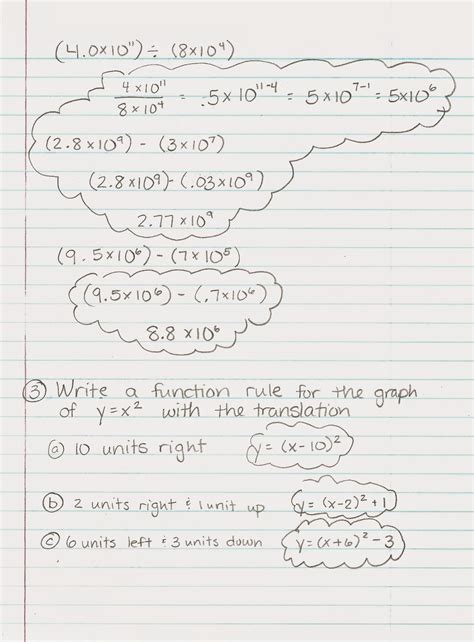 (4.0×10¹¹) ÷ (8×10⁴)
4×10¹¹ / 8×10⁴ = .5×10¹¹⁻⁴ = 5×10⁷⁻¹ = 5×10⁶
(2.8×10⁹) - (3×10⁷)
(2.8×10⁹) - (.03×10⁹)
2.77×10⁹
(9.5×10⁶) - (7×10⁵)
(9.5×10⁶) - (.7×10⁶)
8.8×10⁶
③ Write a function rule for the graph
of y=x² with the translation
ⓐ 10 units right y = (x-10)²
ⓑ 2 units right & 1 unit up y = (x-2)² + 1
ⓒ 6 units left & 3 units down y = (x+6)² - 3